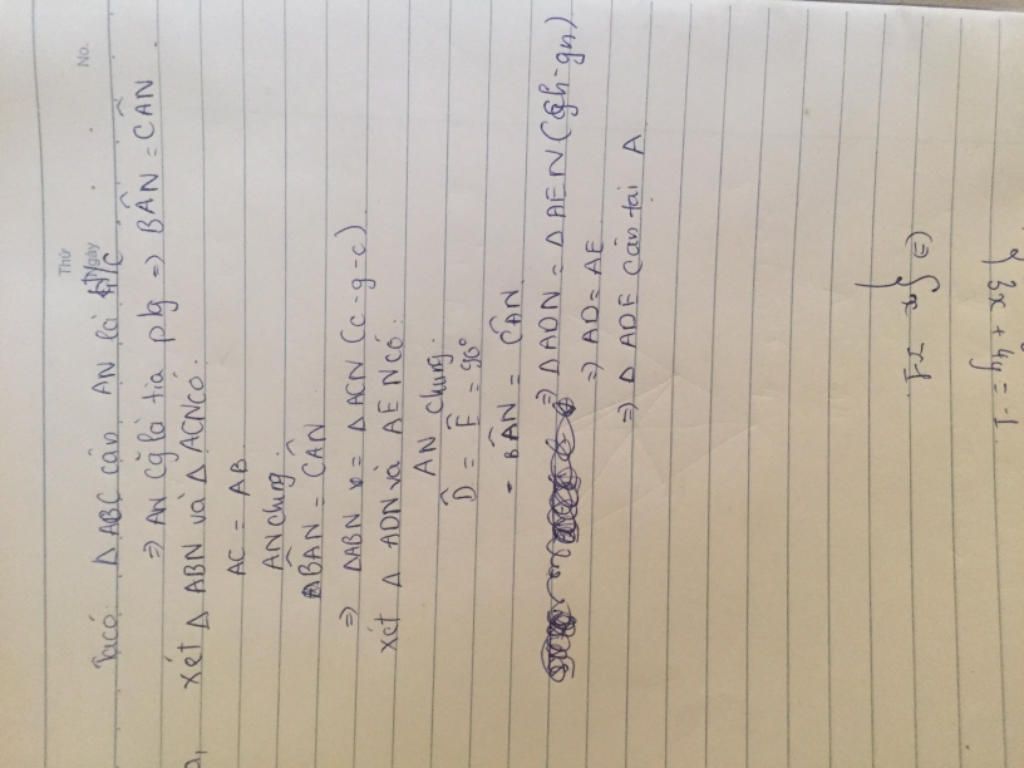 Thứ
Ngày
No.
Ta có: Δ ABC cân AN là đ/c
⇒ AN cg là tia p/g ⇒ BÂN = CÂN
a, xét Δ ABN và Δ ACN có:
AC = AB
AN chung.
BÂN = CÂN
⇒ ΔABN = Δ ACN (c-g-c)
xét Δ ADN và AEN có:
AN chung.
D̂ = Ê = 90°
- BÂN = CÂN
⇒ ΔADN = Δ AEN (ch-gn)
⇒ AD = AE
⇒ Δ ADE cân tại A
3x + 4y = -1